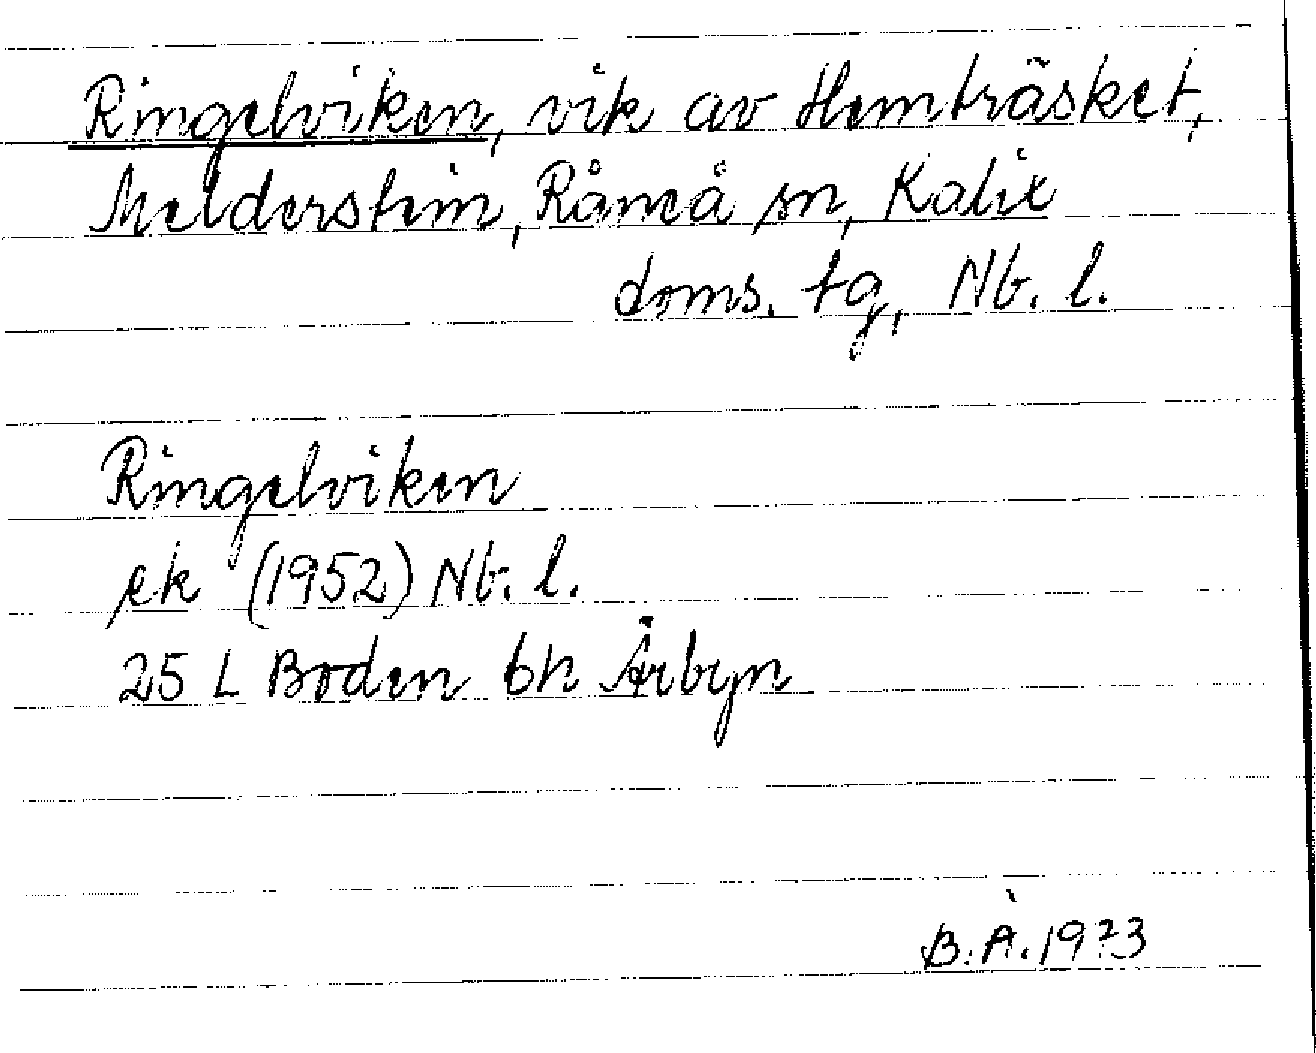 Ringelviken, vik av Hemträsket,
Melderstein, Råneå sn, Kalix
doms. tg, Nb. l.
Ringelviken
ek (1952) Nb. l.
25 L Boden bh Årbyn
B.Å. 1973